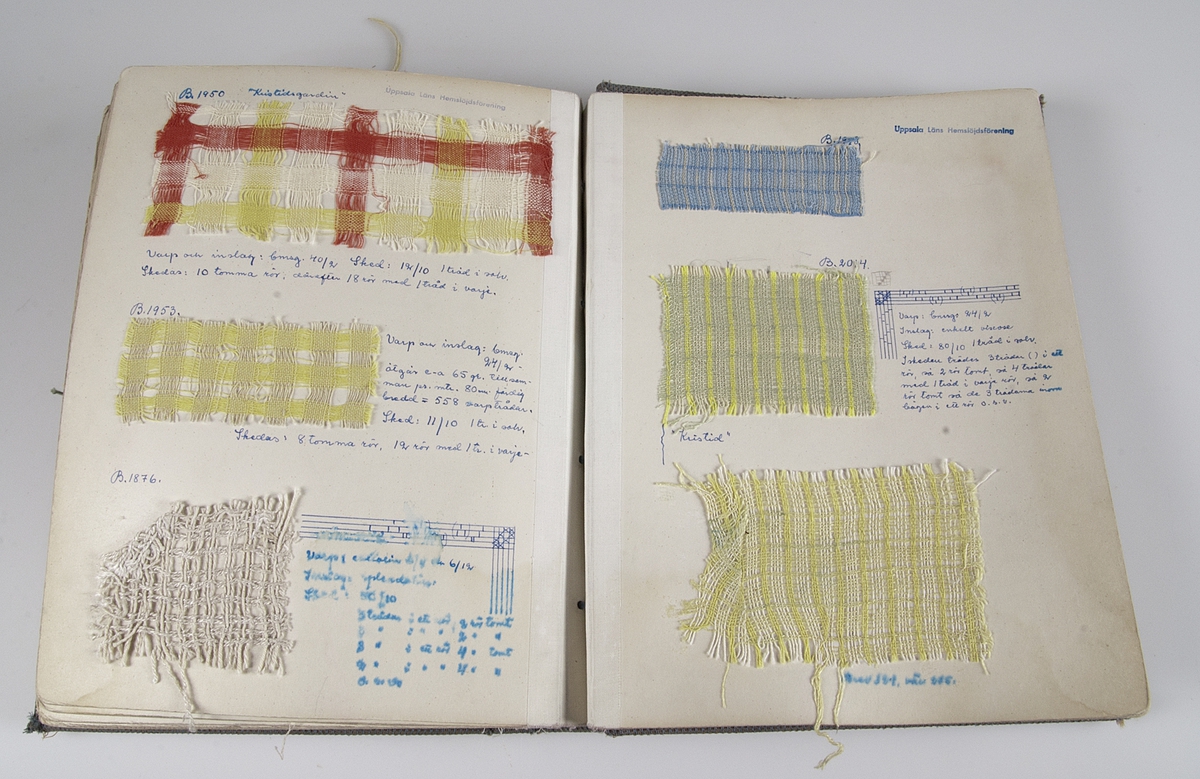 B.1950 "Kristidsgardin"
Uppsala Läns Hemslöjdsförening
Varp och inslag: bmsg. 40/2 Sked: 12/10 1 tråd i solv.
Skedas: 10 tomma rör; därefter 18 rör med 1 tråd i varje.
B.1953.
Varp och inslag: bmsg.
24/2 -
åtgås c-a 65 gr. tillsam-
man pr. mtr. 80cm. färdig
bredd = 558 varptrådar.
Sked: 11/10 1 tr. i solv,
Skedas: 8 tomma rör, 12 rör med 1 tr. i varje-
B.1876.
Varp: 6/12
Inslag:
Sked: 50/10
3 trådar i ett rör, 2 rör tomt
i ett rör 4 tomt
Uppsala Läns Hemslöjdsförening
B.2074.
Varp: bmsg: 24/2
Inslag: enkelt viscose
Sked: 80/10 1 tråd i solv.
I skeden trädes 3 trådar () i ett
rör, så 2 rör tomt, så 4 trådar
med 1 tråd i varje rör, så 2
rör tomt så de 3 trådarna inom
bågen i ett rör o.s.v.
"Kristid"